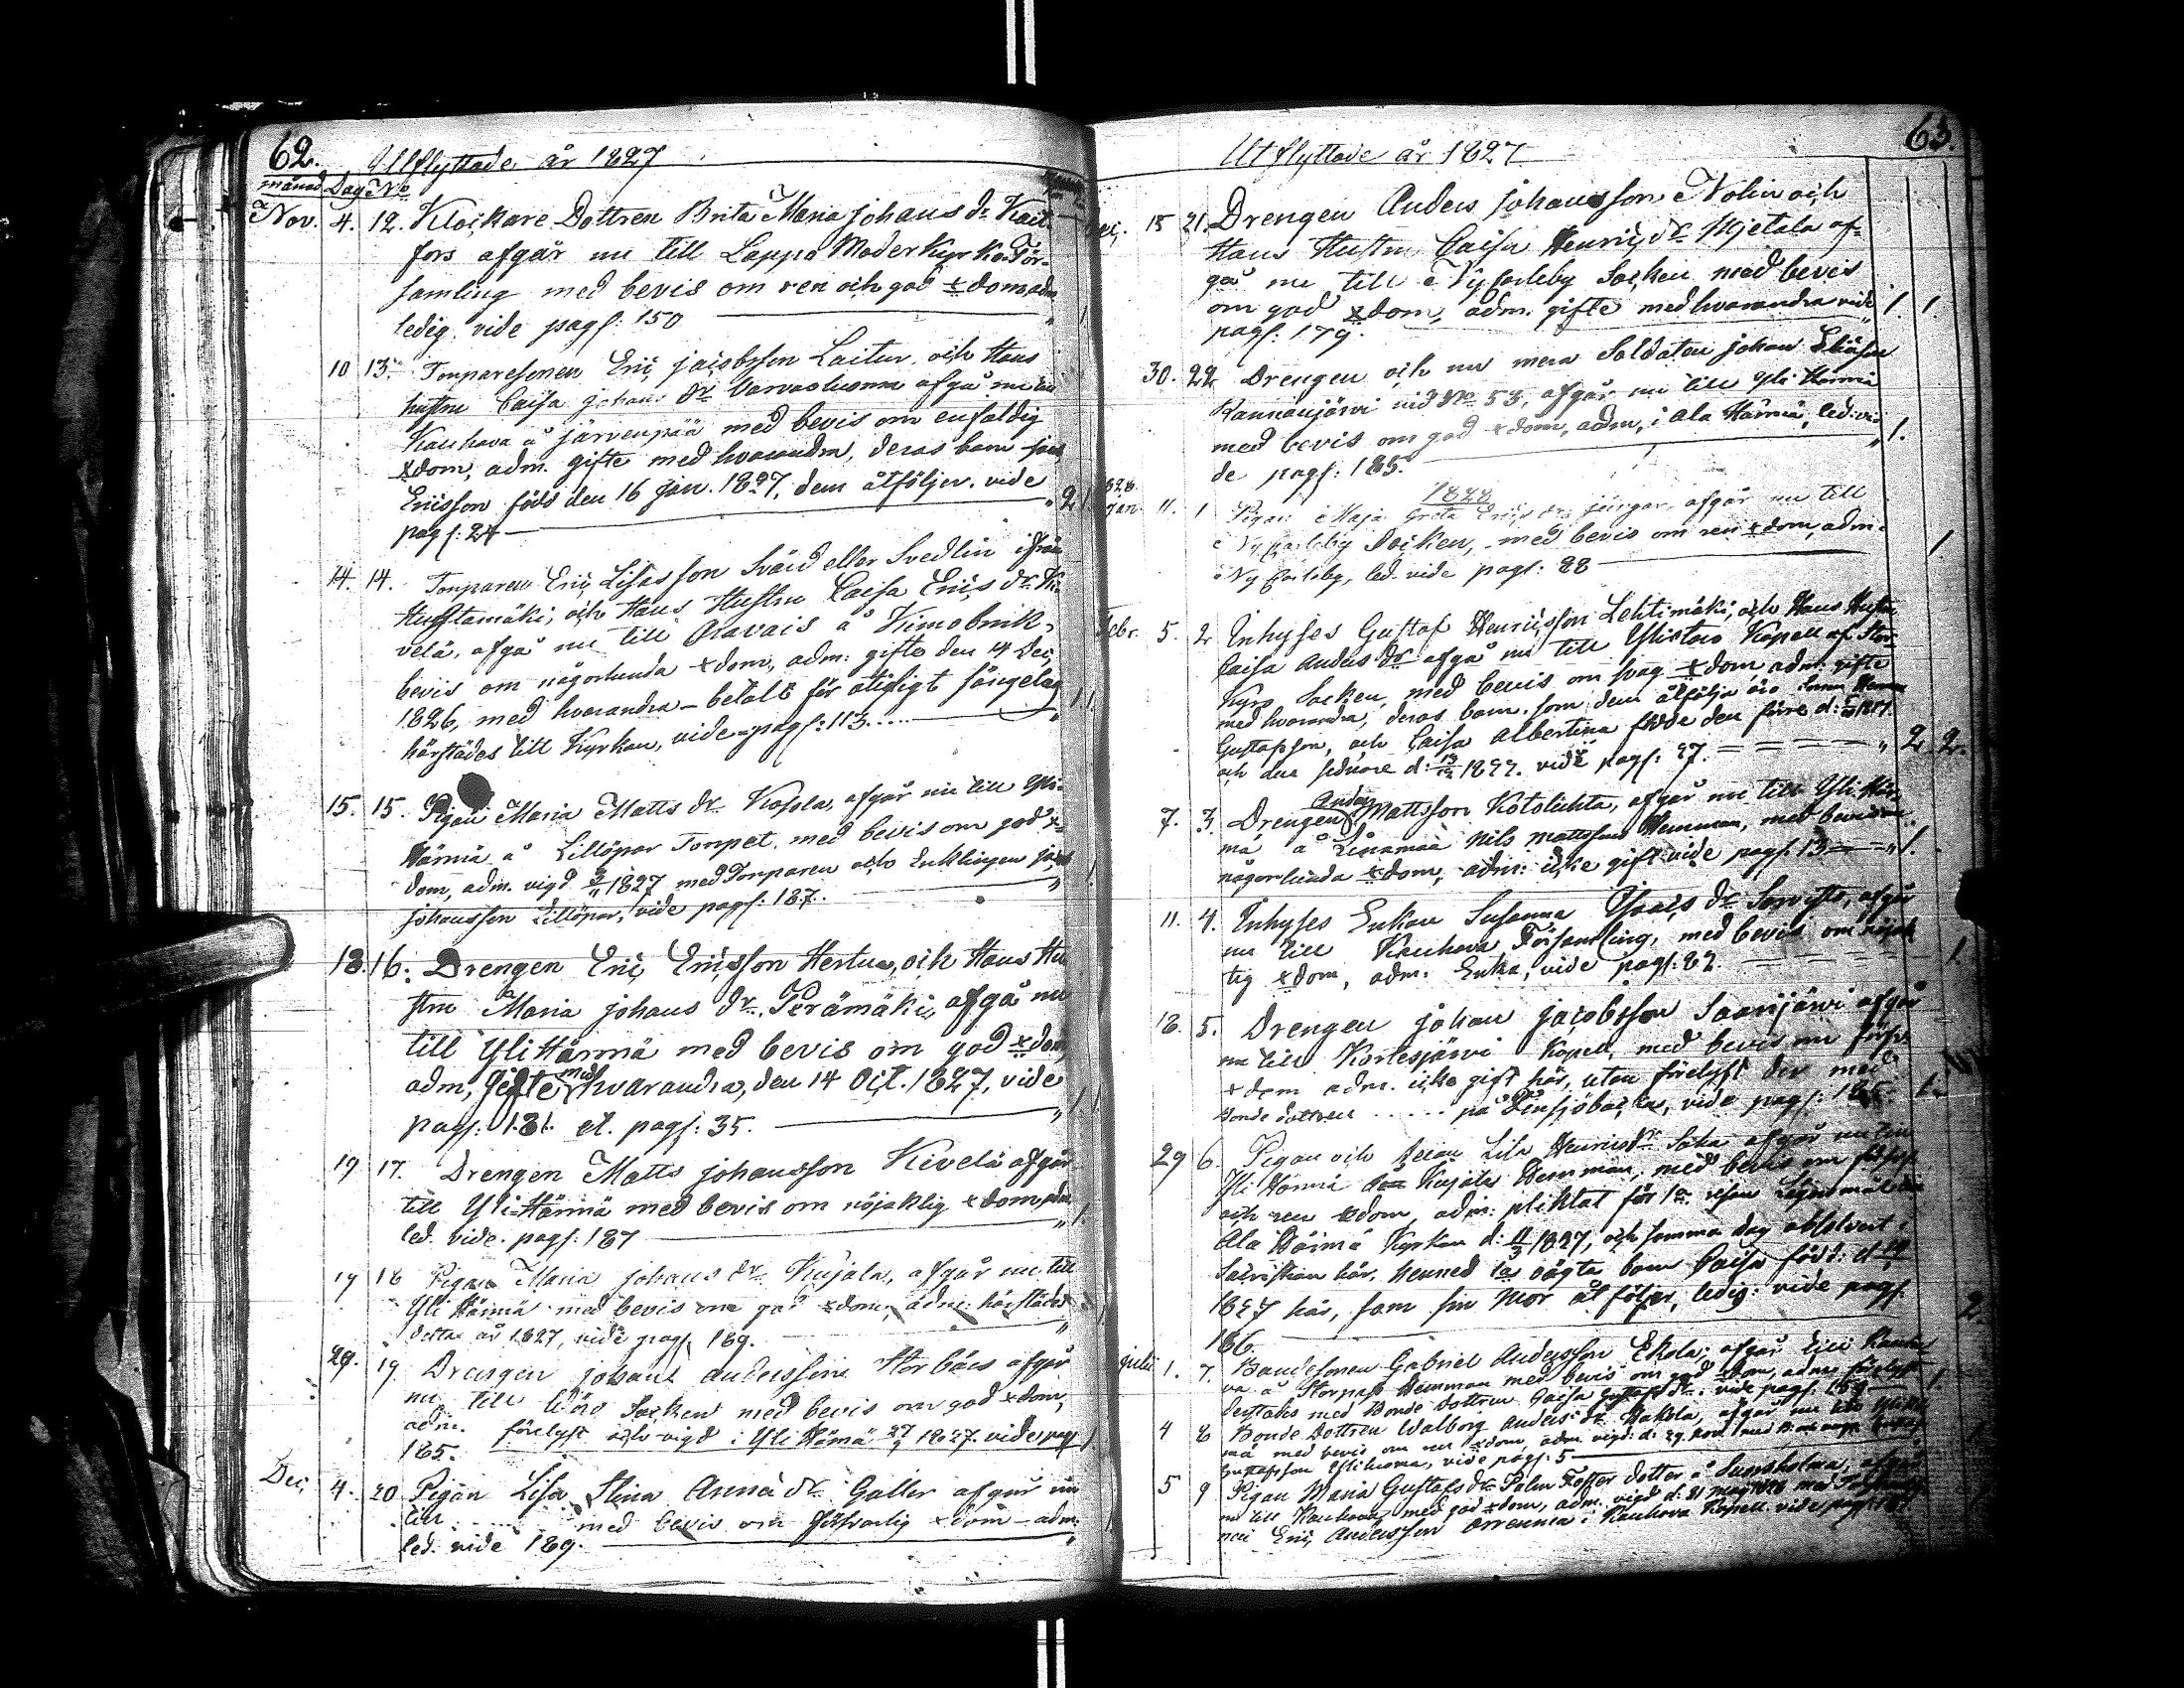 62.
Utflyttade år 1827
månad Dag No
Nov. 4. 12. Klockare Dottren Brita Maria Johans dr Kait-
fors afgår nu till Lappo Moderkyrko För-
samling med bevis om ren och god xdom, adm.
ledig. vide pag: 150
10 13. Torparesonen Eric Jacobsson Laitur och Hans
hustru Caisa Johans dr afgå nu till
Kauhava å Järvenpää med bevis om enfaldig
xdom, adm. gifte med hvarandra, deras barn
Ericsson föds den 16 Jan. 1827, dem åtföljer. vide
pag: 24
14. 14. Torparen Eric Lisasson Svärd eller Svedlin ifrån
Huhtamäki, och Hans Hustru Caisa Erics dr Ki-
velä, afgå nu till Oravais å Kimobruk,
bevis om någorlunda xdom, adm: gifte den 14 Dec,
1826, med hvarandra - betalt för otidigt sängelag
härstädes till Kyrkan, vide pag: 113.
15. 15. Pigan Maria Matts dr Kopla, afgår nu till Yli-
Härmä å Lillöpar Torpet, med bevis om god x-
dom, adm. vigd 1827 med Torparen och Enklingen
Johansson Lillöpar, vide pag: 187.
18. 16. Drengen Eric Ericsson Hertua, och Hans Hu-
stru Maria Johans dr Perämäki, afgå nu
till Yli Härmä med bevis om god xdom,
adm, gifte med hvarandra, den 14 Oct. 1827, vide
pag: 181. et. pag: 35.
19 17. Drengen Matts Johansson Kivelä afgår
till Yli-Härmä med bevis om nöjaktig xdom, adm.
led. vide. pag: 187
19 18 Pigan Maria Johans dr Kujala, afgår nu till
Yli Härmä med bevis om god xdom, adm: härstädes
detta år 1827, vide pag: 189.
29. 19. Drengen Johan Andersson Storbäcs afgår
nu till Wörå Socken med bevis om god xdom,
adm. förelyst och vigd i Yli Härmä 1827. vide pag
185.
Dec, 4. 20 Pigan Lisa Stina Anna dr Galler afgår nu
till ...... med bevis om försvarlig xdom - adm:
led. vide 189.
63.
Utflyttade år 1827
Dec, 15 21. Drengen Anders Johansson Nolin och
Hans Hustru Caisa Henrics dr Mjetala af-
gå nu till Nycarleby Socken med bevis
om god xdom, adm. gifte med hvarandra vide 1. 1.
pag: 179.
30. 22 Drengen och nu mera Soldaten Johan Eliasson
Rannanjärvi vid No 53, afgår nu till Yli Härmä
med bevis om god xdom, adm, i Ala Härmä, led: vi- 1.
de pag: 185.
1828
1828. Jan. 11. 1 Pigan Maja Greta Erics dr Jungar, afgår nu till
Ny Carleby Socken, med bevis om ren xdom, adm.
i Ny Carleby, led. vide pag: 88 1
Febr. 5. 2 Inhyses Gustaf Henricsson Lehtimäki, och Hans Hustru
Caisa Anders dr afgå nu till Ylistaro Kapell af Stor
Kyro Socken, med bevis om svag xdom, adm. gifte
med hvarandra, deras barn, som dem åtfölja äro
Gustafsson, och Caisa Albertina födde den förre d:
och den sednare d: 1827. vide pag: 97. 2 2.
7. 3. Drengen Anders Mattsson Kotoluhta, afgår nu till Yli Här-
mä å Linnmaa Nils Mattsson Hemman, med bevis om
någorlunda xdom, adm: icke gift vide pag: 13 1.
11. 4. Inhyses Enkan Susanna dr afgår
nu till Kauhava Församling, med bevis om nöjak-
tig xdom, adm: Enka, vide pag: 82. 1.
18. 5. Drengen Johan Jacobsson Saarijärvi afgår
nu till Kortesjärvi Kapell, med bevis om
xdom adm. icke gift här, utan förelyst der med
Bonde dottren ...... på vide pag: 185. 1.
29 6. Pigan och Lisa Henrics dr Saha afgår nu till
Yli Härmä å Kujala Hemman, med bevis om
och ren xdom, adm: pliktat för 1a resan Lägersmål
Ala Härmä Kyrkan d: 1827, och samma dag absolverat i
Sacristian här, hennes 1a oägta barn Caisa född: d
1827 här, som sin Mor åtföljer, ledig: vide pag: 2.
186.
Juli 1. 7. Bondesonen Gabriel Andersson Ekola, afgår till Kauha-
va å Storpass Hemman med bevis om god xdom, adm. förelyst
derstädes med Bonde Dottren Caisa Gustafs dr: vide pag: 189 1.
4 8 Bonde Dottren Walborg Anders dr Hakola, afgår nu till Yli Här-
mä med bevis om ren xdom, adm. vigd: d: 29.
Gustafsson vide pag: 5
5 9 Pigan Maria Gustafs dr Palm Foster Dotter å afgår
nu till Kauhava, med god xdom, adm. vigd d: 31 Maji 1828 med
Eric Andersson i Kauhava Kapell. vide pag: